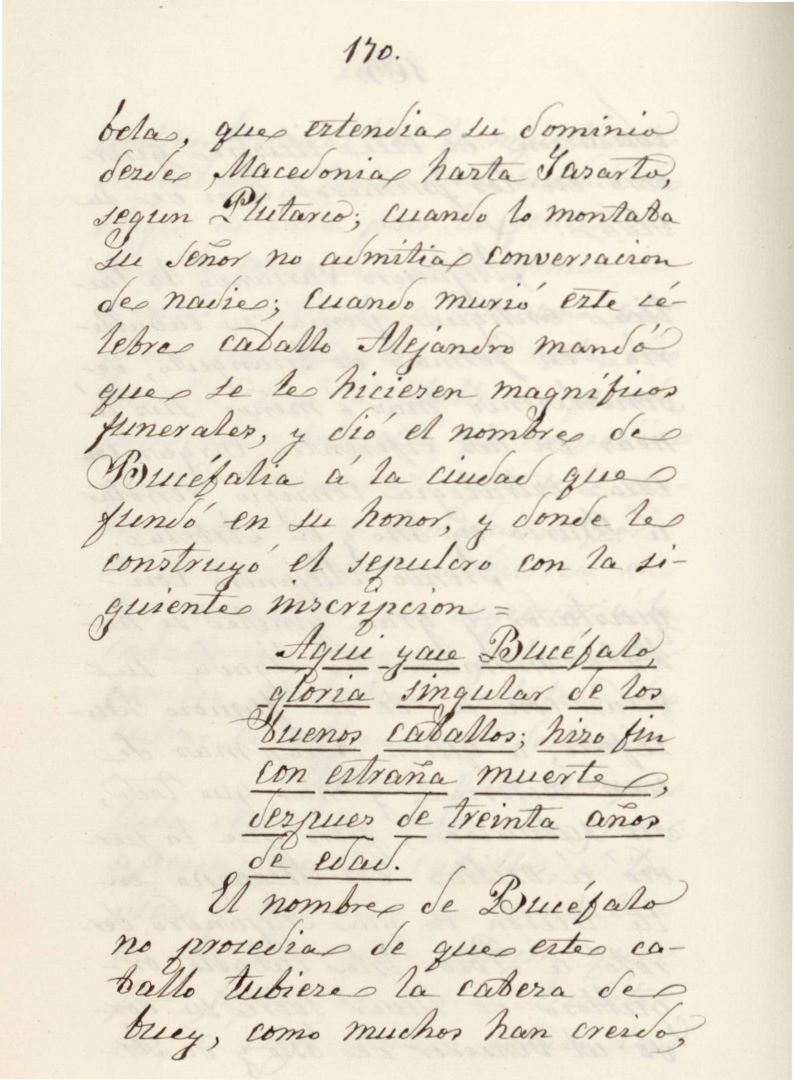 170.
bela, que estendia su dominio
desde Macedonia hasta Jasarto,
segun Plutarco; cuando lo montaba
su señor no admitia conversacion
de nadie; cuando murió este cé-
lebre caballo Alejandro mandó
que se le hiciesen magníficos
funerales, y dió el nombre de
Bucéfalia á la ciudad que
fundó en su honor, y donde le
construyó el sepulcro con la si-
guiente inscripcion=
Aqui yace Bucéfalo,
gloria singular de los
buenos caballos; hizo fin
con estraña muerte,
despues de treinta años
de edad.
El nombre de Bucéfalo
no prosedia de que este ca-
ballo tubiese la cabeza de
buey, como muchos han creido,